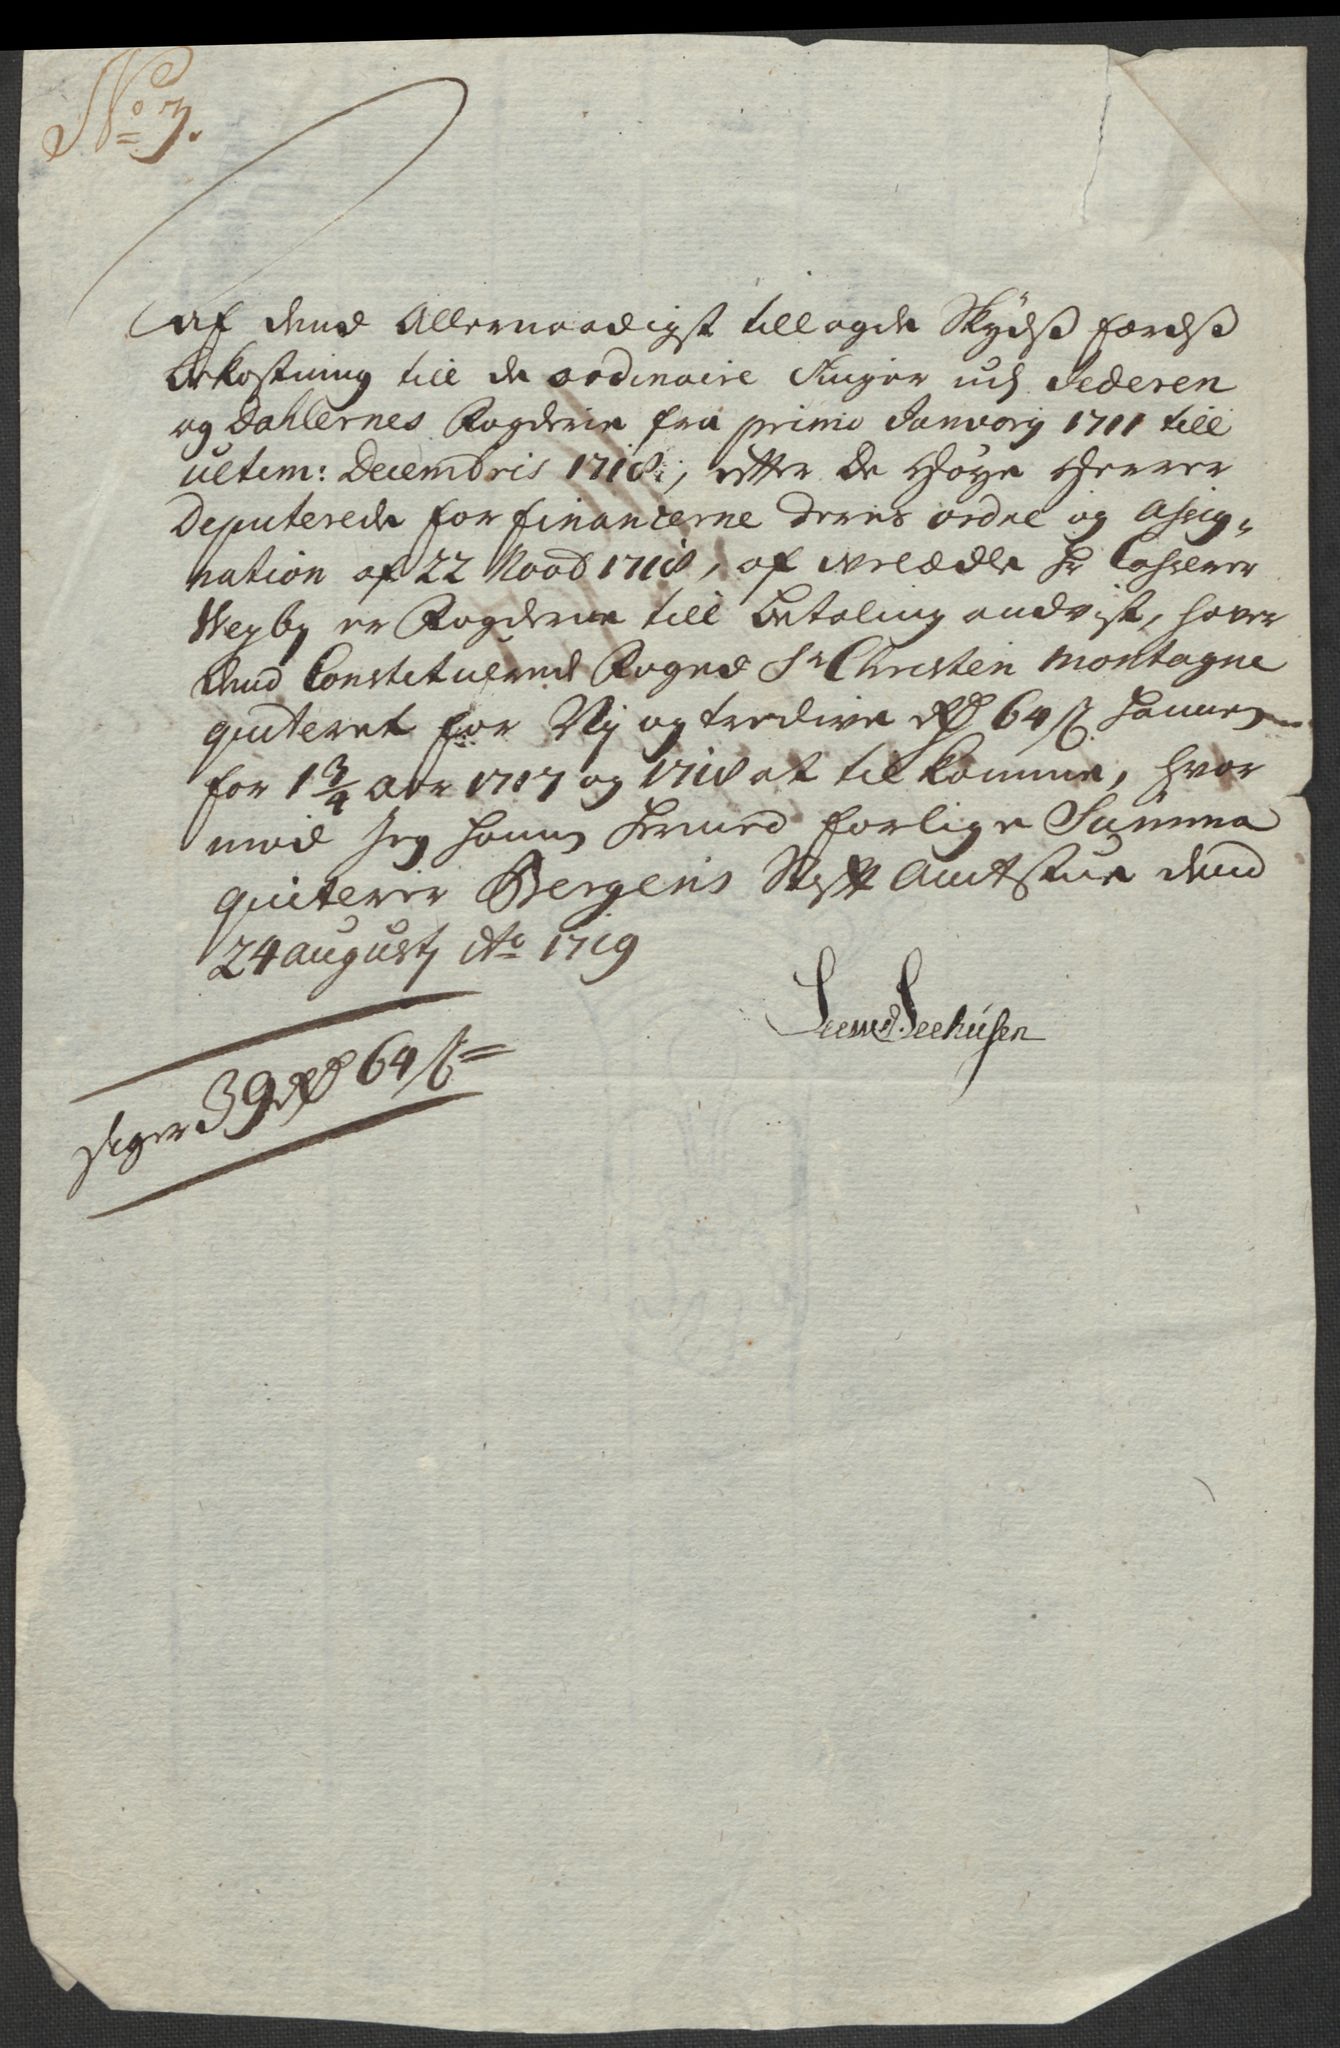 No 7.
Af dend Allernaadigst tillagde Skydsz færdsz
bekostning till de ordinaire Tinger udj Jederen
og Dahlernes Fogderie fra primo Janvarij 1711 till
ultim: Decembris 1718, efter de Høye Herrer
Deputerede for financerne deres ordre og Assig¬
nation af 22 Novb 1718, af welædle Hr Casserer
Wegby er Fogderne till betaling andvist, haver
dend Constituerede Foged Sr Christen Montagne
quiteret for Nj og tredive Rd 64 s hannem
for 1 3/4 Aar 1717 og 1718 at tilkomme, hvor
imod Jeg hannem hermed forlige Summa
quiterer Bergens Stift Amtstue dend
24 augustj Ao 1719
Seehusen
siger 39 Rd 64 s